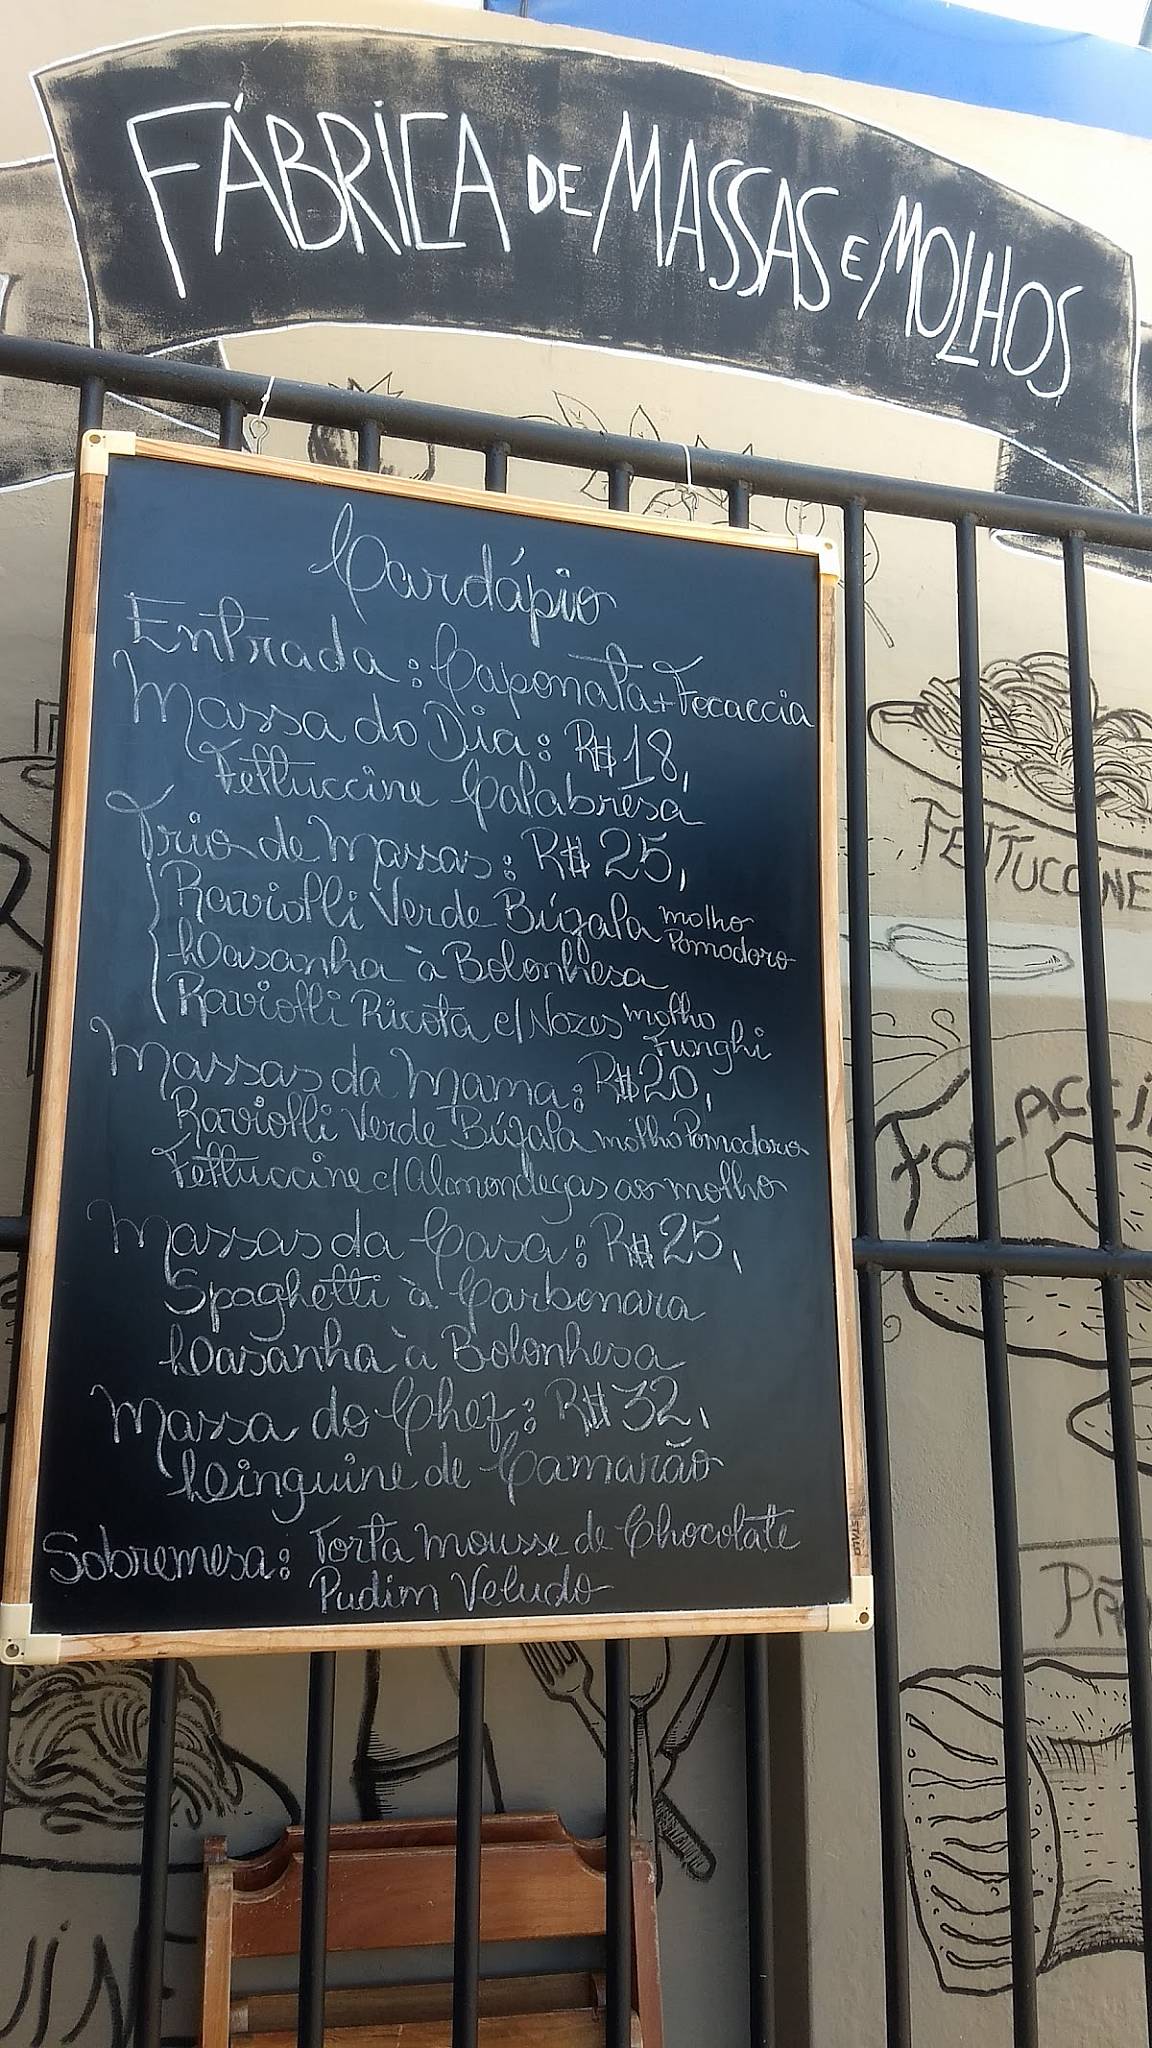 FÁBRICA DE MASSAS E MOLHOS
Cardápio
Entrada: Caponata + Focaccia
Massa do Dia: R$ 18,
Fettuccine Calabresa
Trio de Massas: R$ 25,
Raviolli Verde Búfala molho Pomodoro
Lasanha à Bolonhesa
Raviolli Ricota c/ Nozes molho Funghi
Massas da Mama: R$ 20,
Raviolli Verde Búfala molho Pomodoro
Fettuccine c/ Almondegas ao molho
Massas da Casa: R$ 25,
Spaghetti à Carbonara
Lasanha à Bolonhesa
Massa do Chef: R$ 32,
Linguine de Camarão
Sobremesa: Torta mousse de Chocolate
Pudim Veludo
FETTUCCINE
FOCACCI
PÃ
UINE